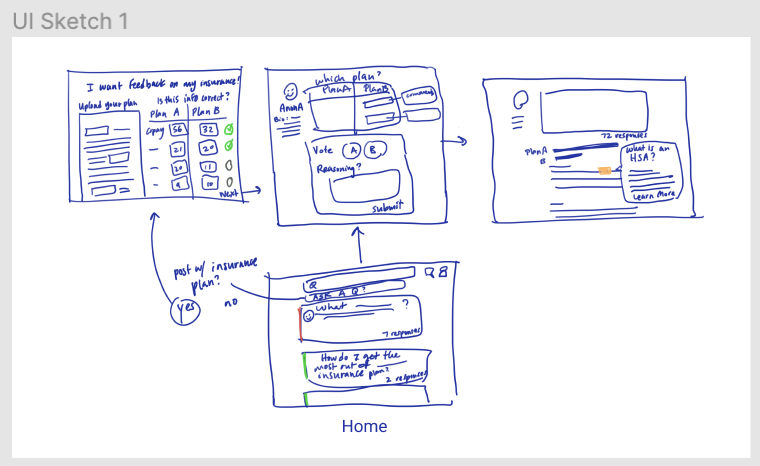 UI Sketch 1
I want feedback on my insurance!
Upload your plan
Is this info correct?
Plan A Plan B
Copay 56 32
21 20
20 11
9 10
Next
which plan?
Plan A Plan B
AnonA
Bio:
comments
Vote A B
Reasoning?
submit
72 responses
Plan A
B
What is an
HSA?
Learn More
post w/ insurance
plan?
yes no
Q
ASK A Q?
What ?
7 responses
How do I get the
most out of
insurance plan?
2 responses
Home